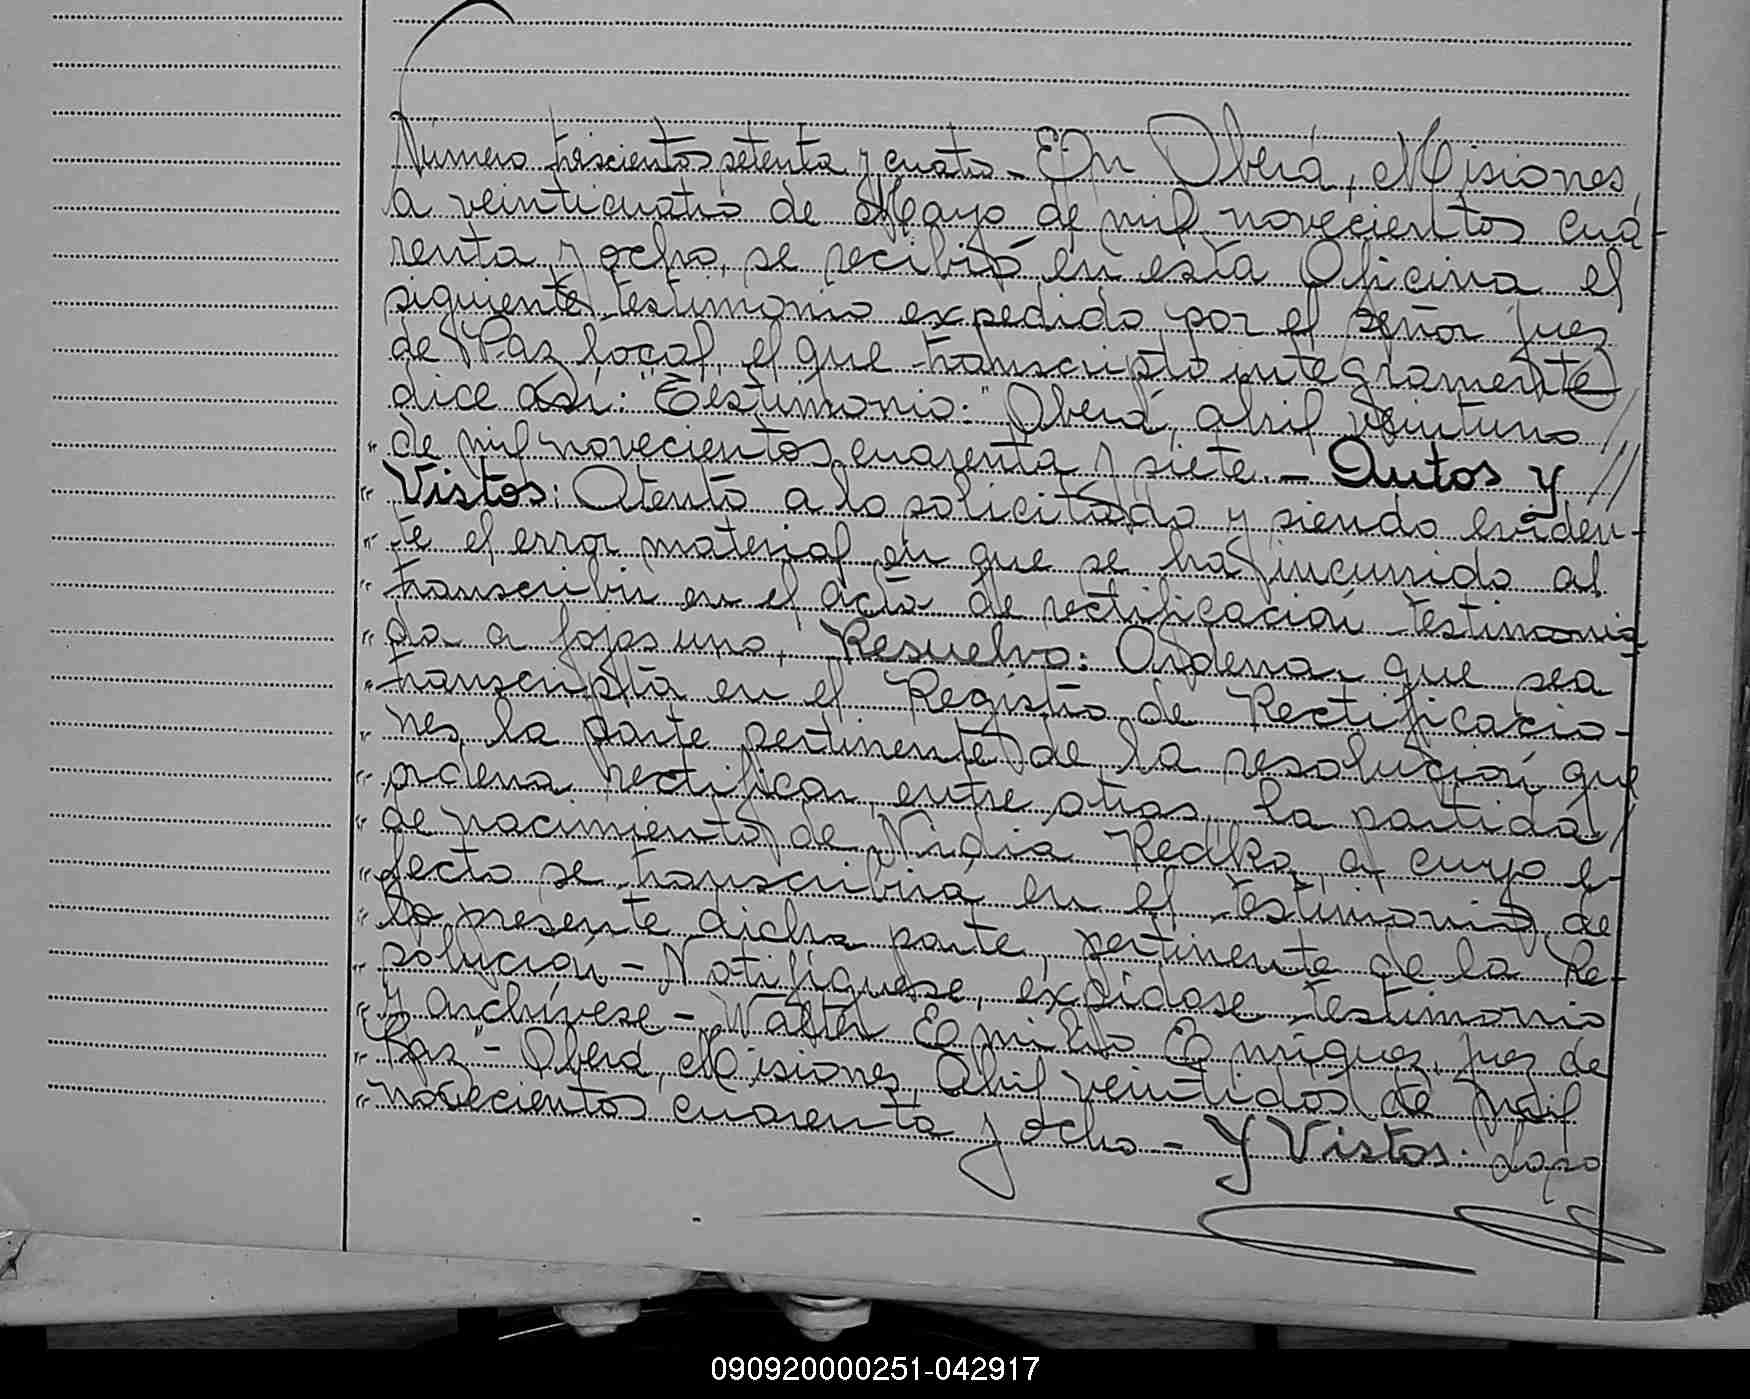 Número trescientos setenta y cuatro - En Oberá, Misiones,
a veinticuatro de Mayo de mil novecientos cua-
renta y ocho, se recibió en esta Oficina el
siguiente testimonio expedido por el señor juez
de Paz local, el que transcripto íntegramente
dice así: "Testimonio:" Oberá, abril veintuno //
" de mil novecientos cuarenta y siete. - Autos y //
" Vistos: Atento a lo solicitado y siendo eviden-
" te el error material en que se ha incurrido al
" transcribir en el acta de rectificación testimonia
" da a fojas uno, Resuelvo: Ordenar que sea
" transcripta en el Registro de Rectificacio-
" nes, la parte pertinente de la resolución que
" ordena rectificar, entre otras, la partida /
" de nacimiento de Nidia Redko, a cuyo e-
" fecto se transcribirá en el testimonio de
" la presente dicha parte, pertinente de la Re-
" solución - Notifíquese, expídase testimonio
" y archívese - Walter Emilio Enríquez, juez de
" Paz" - Oberá, Misiones, Abril veintidós de mil
" novecientos cuarenta y ocho - Y Vistos:
090920000251-042917